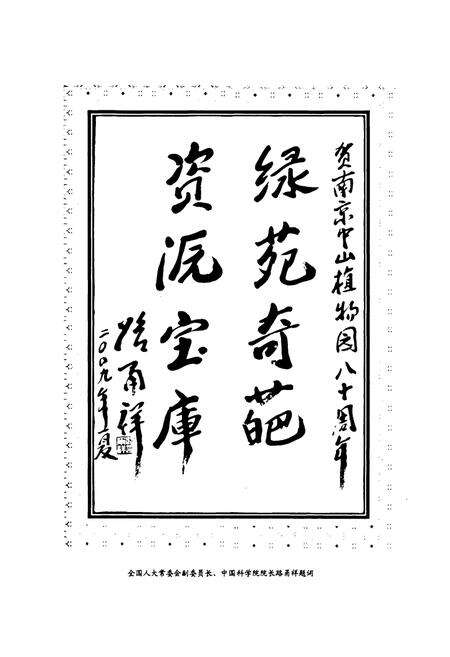 贺南京中山植物园八十周年
绿苑奇葩
资源宝库
路甬祥
二〇〇九年夏
全国人大常委会副委员长、中国科学院院长路甬祥题词